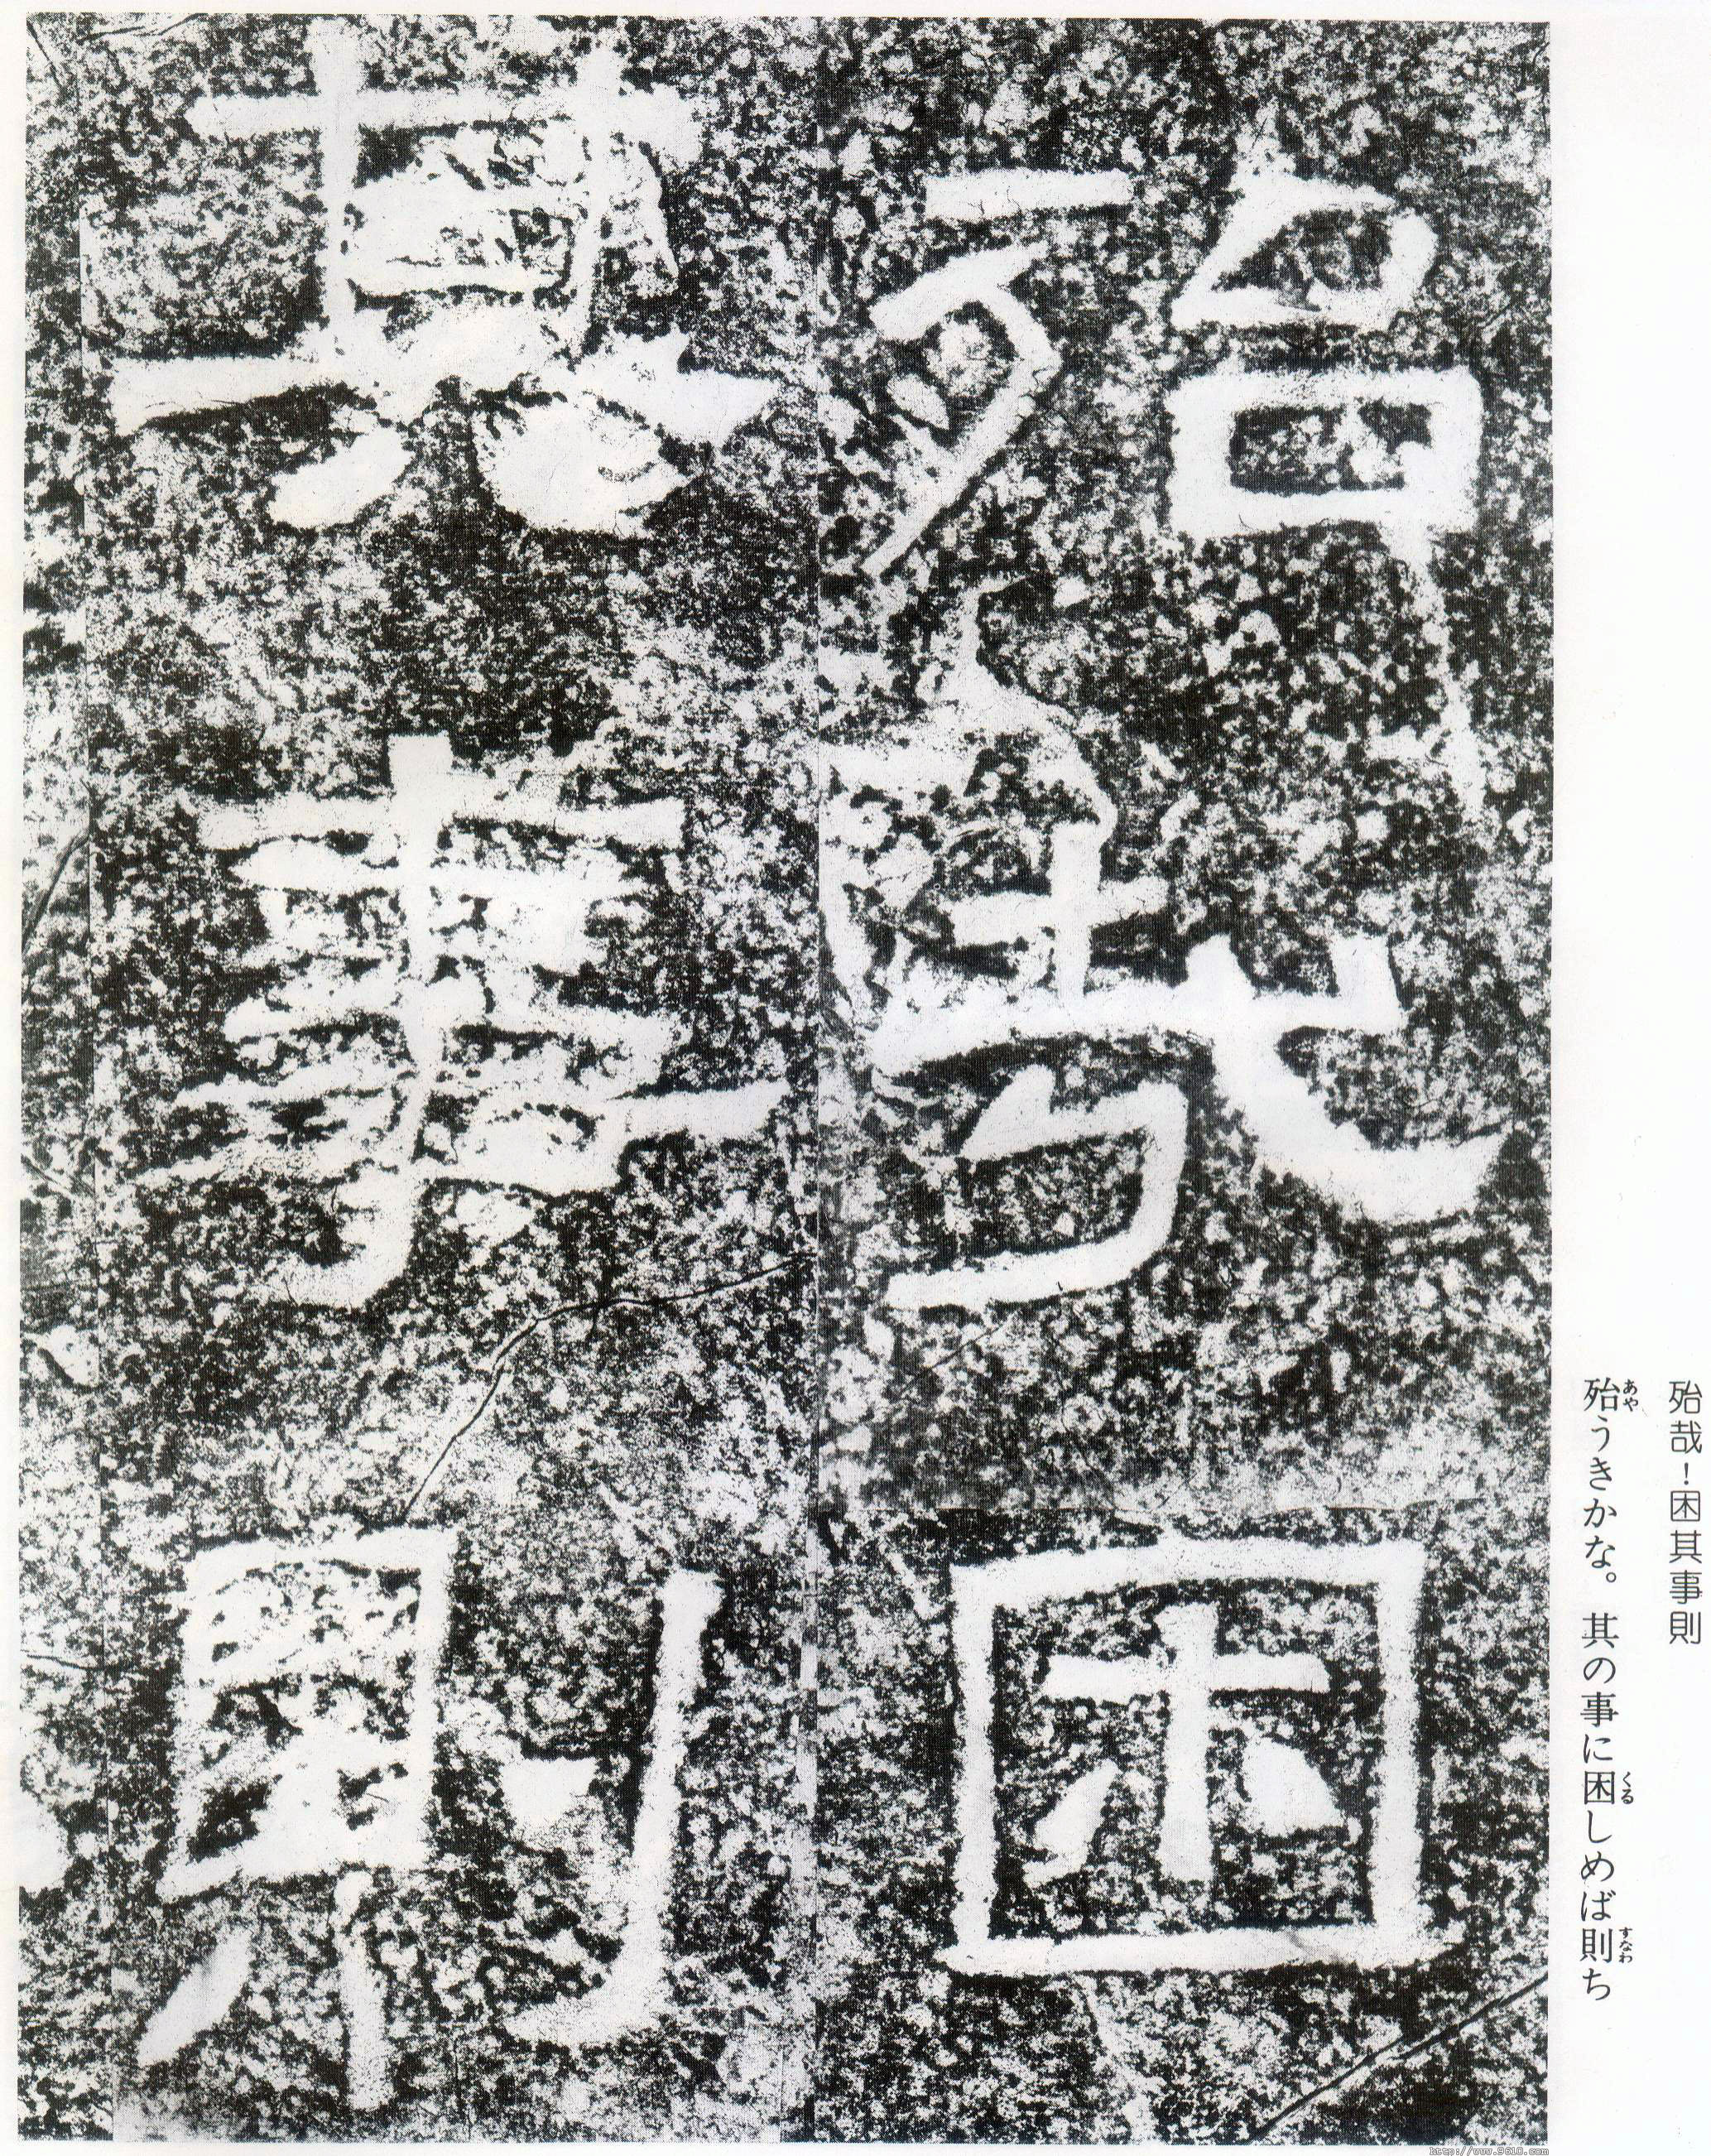 殆哉困
其事則
殆哉！困其事則
殆うきかな。其の事に困しめば則ち
あや
くる
すなわ
http://www.9610.com